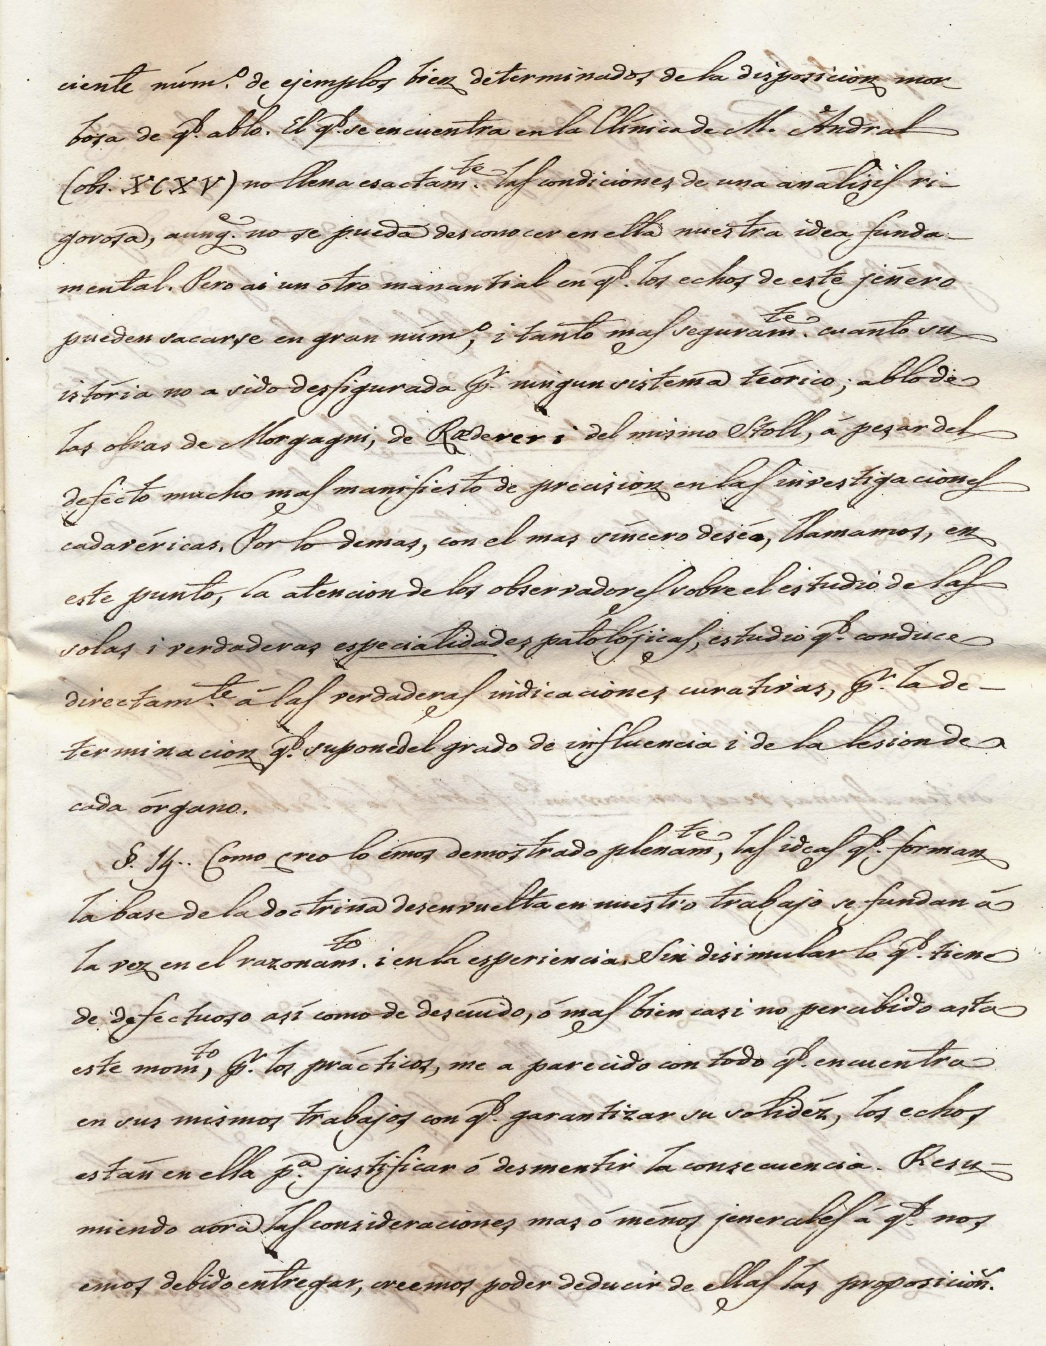 ciente núm.º de ejemplos bien determinados de la disposicion mor
bosa de q.e ablo. El q.e se encuentra en la Clínica de M. Andral
(obs. XCXV) no llena esactam.te las condiciones de una análisis ri-
gorosa, aunq.e no se pueda desconocer en ella nuestra idea funda-
mental. Pero ai un otro manantial en q.e los echos de este jénero
pueden sacarse en gran núm.º, i tanto mas seguram.te cuanto su
istória no a sido desfigurada p.r ningun sistema teórico; ablo de
las obras de Morgagni, de Rœderer i del mismo Stoll, á pesar del
defecto mucho mas manifiesto de precision en las investigaciones
cadavéricas. Por lo demas, con el mas síncero deséo, llamamos, en
este punto, la atencion de los observadores sobre el estudio de las
solas i verdaderas especialidades patolójicas, estudio q.e conduce
directam.te á las verdaderas indicaciones curativas, p.r la de-
terminacion q.e supone del grado de influencia i de la lesion de
cada órgano.
§. 14. Como creo lo emos demostrado plenam.te, las ideas q.e forman
la base de la doctrina desenvuelta en nuestro trabajo se fundan á
la vez en el razonam.to i en la esperiencia. Sin disimular lo q.e tiene
de defectuoso así como de descuido, ó mas bien casi no percibido asta
este mom.to, p.r los prácticos, me a parecido con todo q.e encuentra
en sus mismos trabajos con q.e garantizar su solidéz, los echos
están en ella p.a justificar ó desmentir la consecuencia. Resu-
miendo aora las consideraciones mas ó ménos jenerales á q.e nos
emos debido entregar, creemos poder deducir de ellas las proposición.